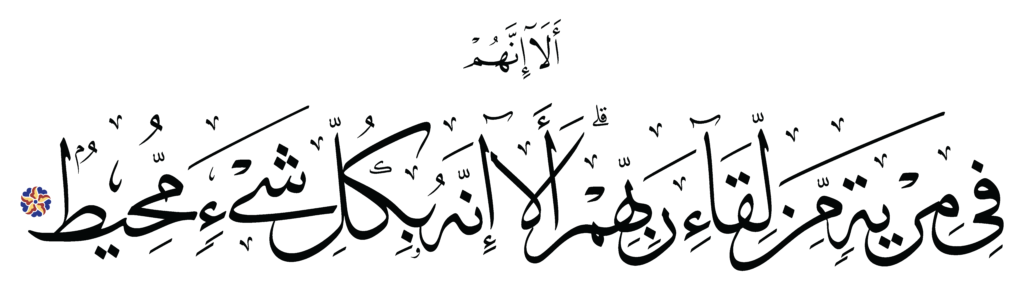 أَلَآ إِنَّهُمْ
فِى مِرْيَةٍ مِّن لِّقَآءِ رَبِّهِمْ ۗ أَلَآ إِنَّهُۥ بِكُلِّ شَىْءٍ مُّحِيطٌۢ